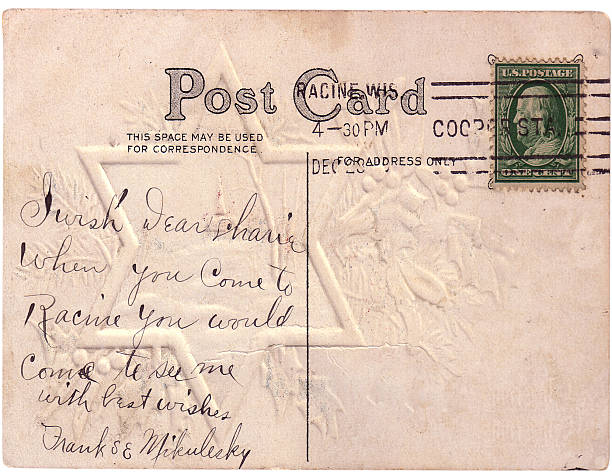 Post Card
RACINE WIS.
4-30PM
DEC 23
COOPER STA
U.S. POSTAGE
ONE CENT
THIS SPACE MAY BE USED
FOR CORRESPONDENCE.
FOR ADDRESS ONLY
I wish Dear
When you Come to
Racine you would
Come to see me
with best wishes
Frank & E Mikulesky